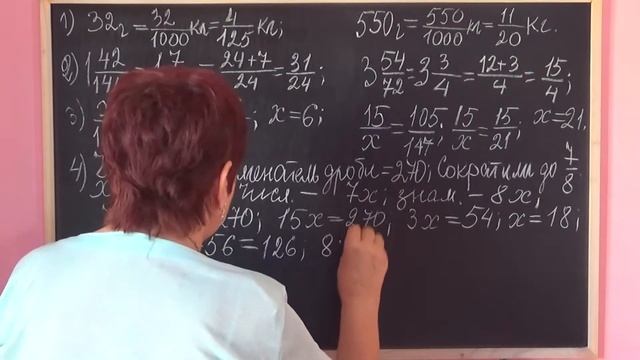 1) 32г = 32/1000 кг = 4/125 кг; 550г = 550/1000 кг = 11/20 кг.
2) 1 42/ = 24+7/24 = 31/24; 3 54/72 = 3 3/4 = 12+3/4 = 15/4;
3) x = 6; 15/x = 105/147; 15/x = 15/21; x = 21.
4) дроби = 270; Сократили до 7/8
числ. – 7x; знам. – 8x;
270; 15x = 270; 3x = 54; x = 18;
56 = 126; 8